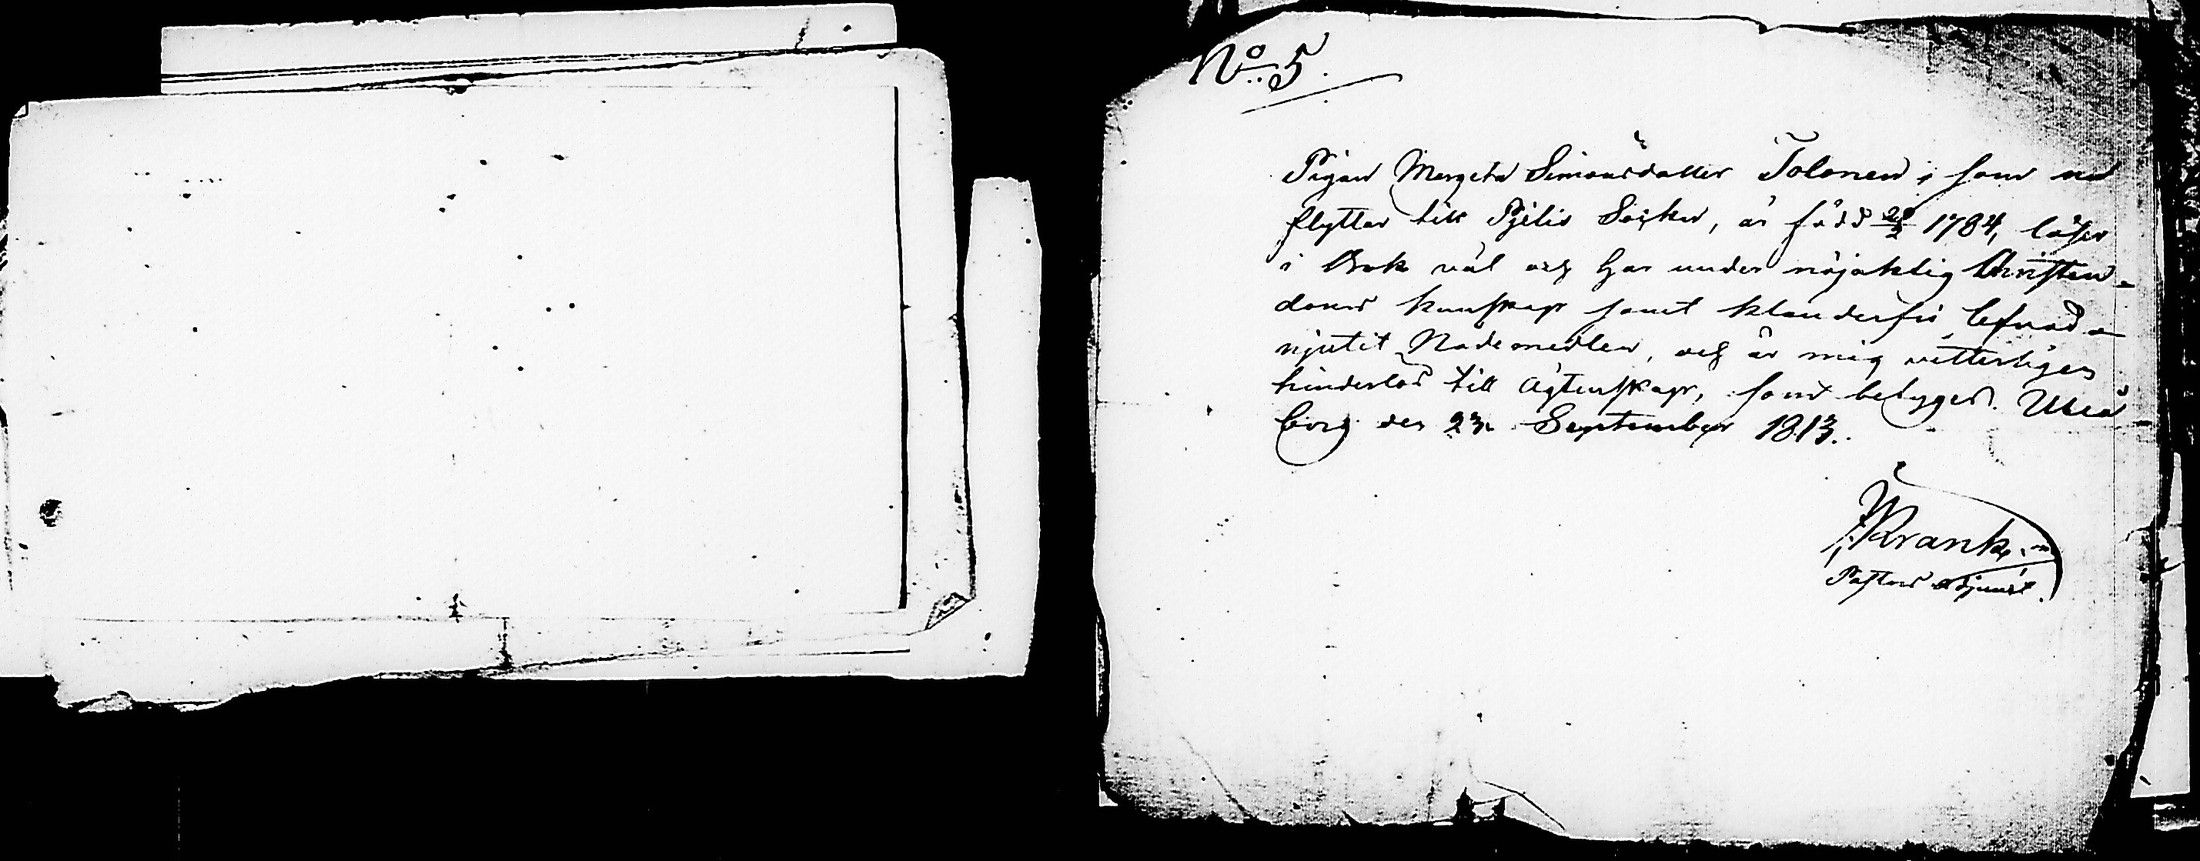 No 5.
Pigan Margeta Simonsdotter Tolonen, som nu
flyttar till Pyhäjoki Socken, är född 1784, läser
i Bok väl och har under nöjaktig Christen-
doms kunskap samt klanderfri lefnad
njutit Nådemedlen, och är mig vetterligen
hinderlös till Ägtenskap, som betygas. Uleå
borg den 23 September 1813.
J. Krank.
Pastors adjunct.